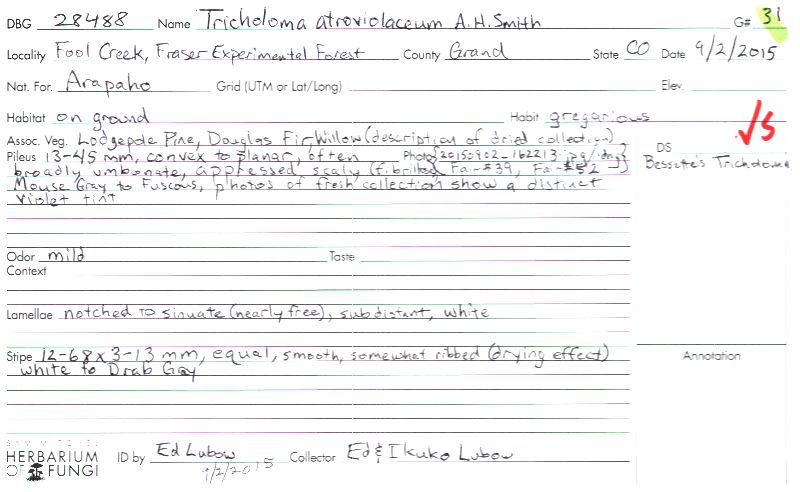 DBG 28488 Name Tricholoma atroviolaceum A.H.Smith G# 31
Locality Fool Creek, Fraser Experimental Forest County Grand State CO Date 9/2/2015
Nat. For. Arapaho Grid (UTM or Lat/Long) Elev.
Habitat on ground Habit gregarious
√S
Assoc. Veg. Lodgepole Pine, Douglas Fir, Willow (description of dried collection)
DS
Pileus 13-45 mm, convex to planar, often Photo {20150902-162213.jpg/.dng}
Bessette's Tricholoma
broadly umbonate, appressed scaly (fibrilled, Fa-#39, Fa-#52)
Mouse Gray to Fuscous, photos of fresh collection show a distinct
violet tint
Odor mild Taste
Context
Lamellae notched to sinuate (nearly free), subdistant, white
Stipe 12-68 x 3-13 mm, equal, smooth, somewhat ribbed (drying effect)
Annotation
white to Drab Gay
SAM MITCHEL
HERBARIUM OF FUNGI
ID by Ed Lubow 9/2/2015 Collector Ed & Ikuko Lubow